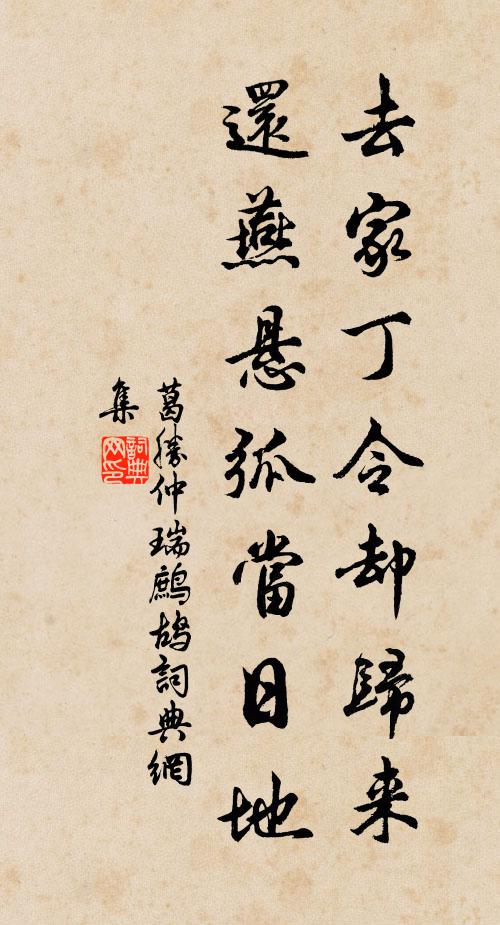 去家丁令却歸来
還燕悬弧當日地
葛勝仲瑞鷓鴣詞典網
集
詞典网印